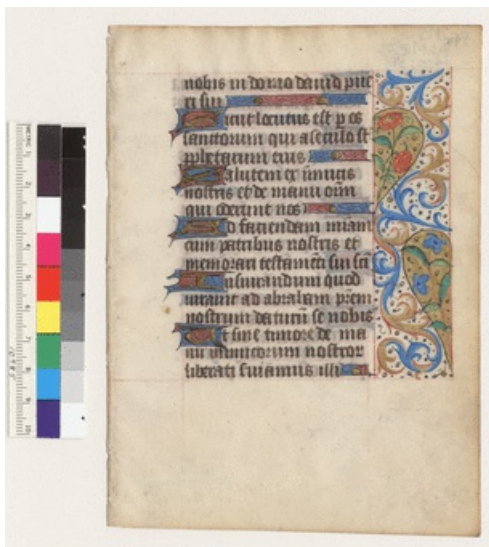 nobis in domo dauid pue
ri sui
Sicut locutus est p os
sanctorum qui a seculo st
pphetarum eius
Salutem ex inimicis
nostris et de manu oim
qui oderunt nos
Ad faciendam miam
cum patribus nostris et
memorari testamenti sui sci
Iusiurandum quod
iurauit ad abraham prem
nostrum daturu se nobis
Ut sine timore de ma
nu inimicorum nostror
liberati seruiamus illi